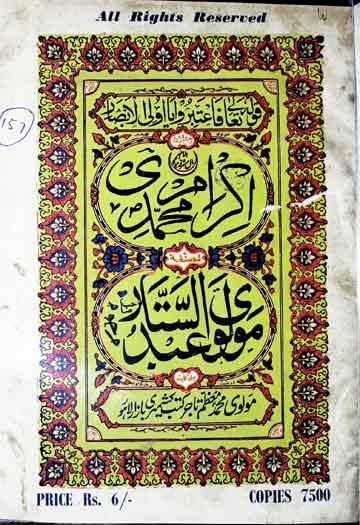 All Rights Reserved
157
قولہ تعالیٰ فاعتبروا یا اولی الابصار
اکرام محمدی
مصنفہ
مولوی عبدالستار
مولوی محمد معظم تاجر کتب کشمیری بازار لاہور
PRICE Rs. 6/-
COPIES 7500